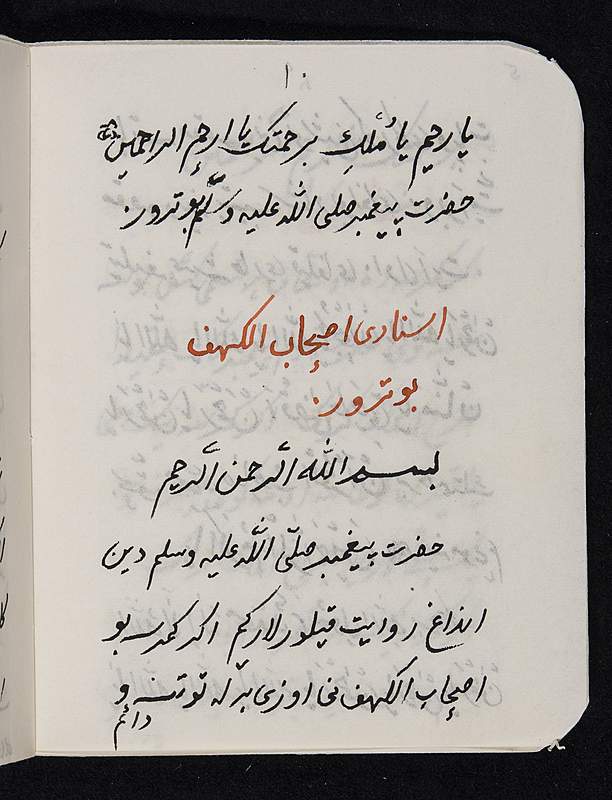 ١٠
يا رحيم يا مُلْكِ برحمتك يا ارحم الراحمين
حضرت پيغمبر صلى الله عليه وسلّم بو ترور.
اسنادى اصحاب الكهف
بو ترور.
بسم الله الرّحمن الرّحيم
حضرت پيغمبر صلّى اللّه عليه وسلم دين
انداغ روايت قيلورلاركم اكر كمرسه بو
اصحاب الكهف نى اوزى برله توتسه و
دائم